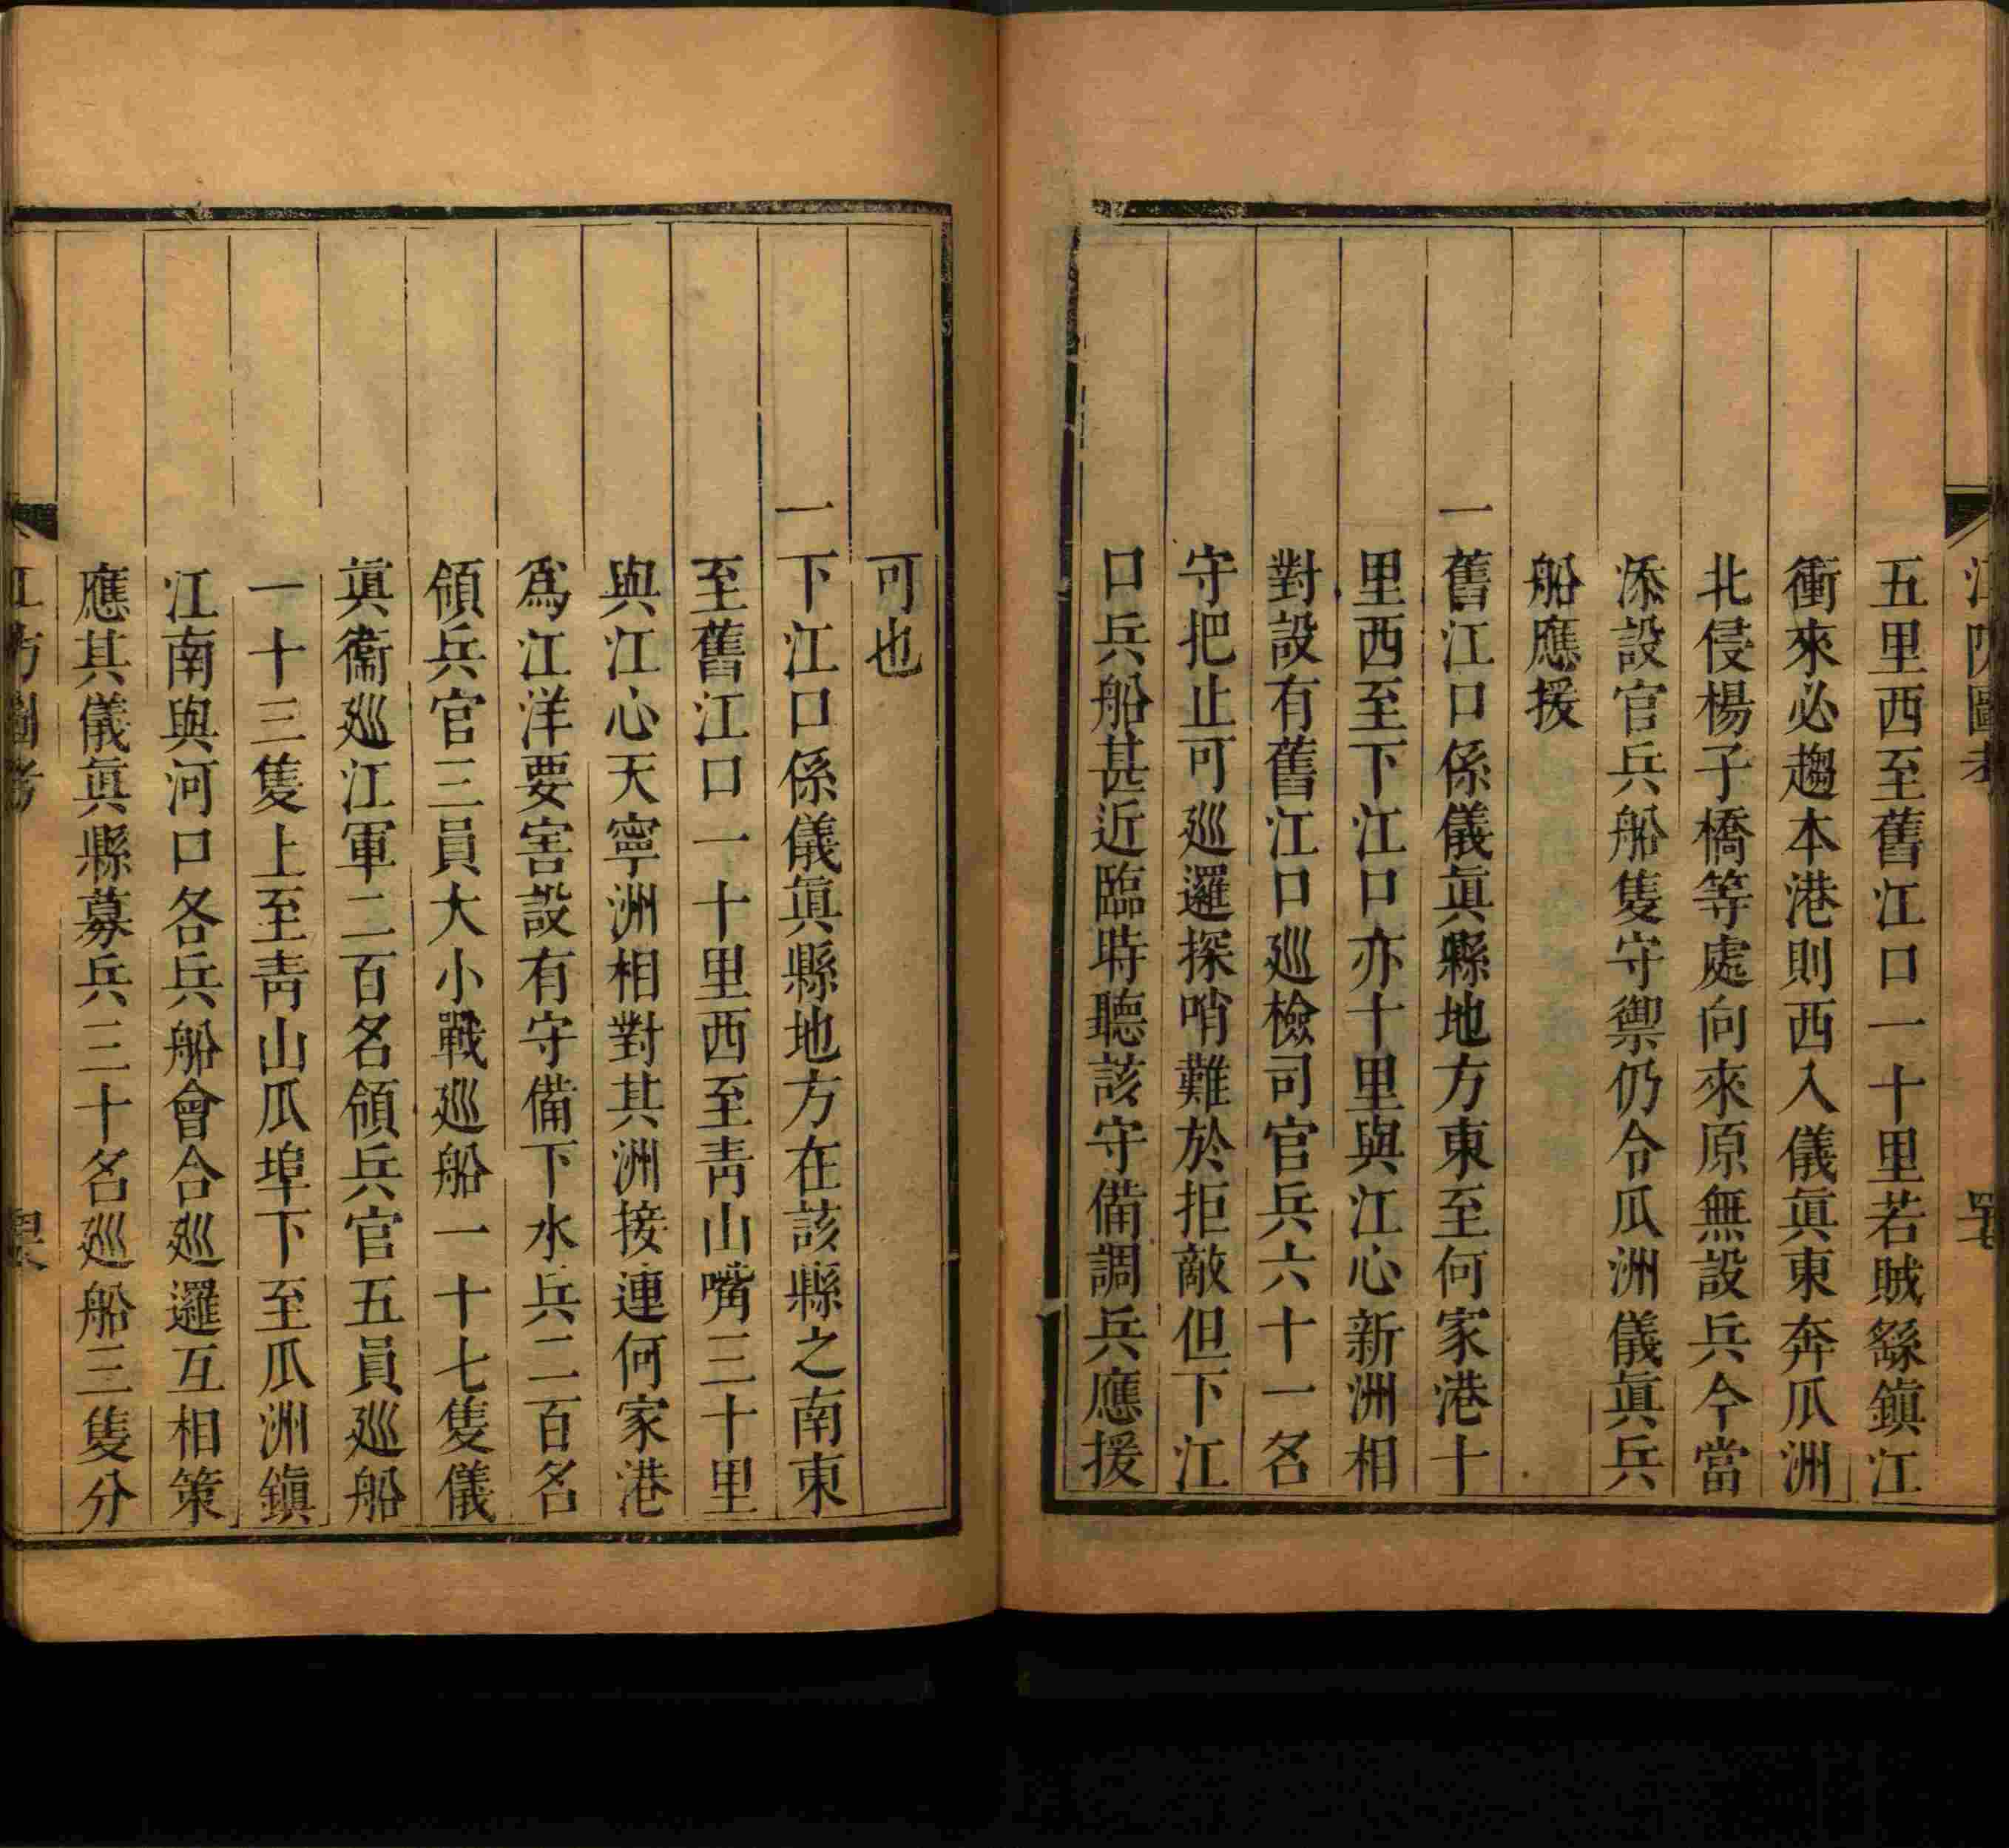 五里西至舊江口一十里若賊繇鎮江
衝來必趨本港則西入儀眞東奔瓜洲
北侵楊子橋等處向來原無設兵今當
添設官兵船隻守禦仍令瓜洲儀眞兵
船應援
一舊江口係儀眞縣地方東至何家港十
里西至下江口亦十里與江心新洲相
對設有舊江口巡檢司官兵六十一名
守把止可巡邏探哨難於拒敵但下江
口兵船甚近臨時聽該守備調兵應援
可也
一下江口係儀眞縣地方在該縣之南東
至舊江口一十里西至靑山嘴三十里
與江心天寧洲相對其洲接連何家港
爲江洋要害設有守備下水兵二百名
領兵官三員大小戰巡船一十七隻儀
眞衞巡江軍二百名領兵官五員巡船
一十三隻上至靑山瓜埠下至瓜洲鎮
江南與河口各兵船會合巡邏互相策
應其儀眞縣募兵三十名巡船三隻分